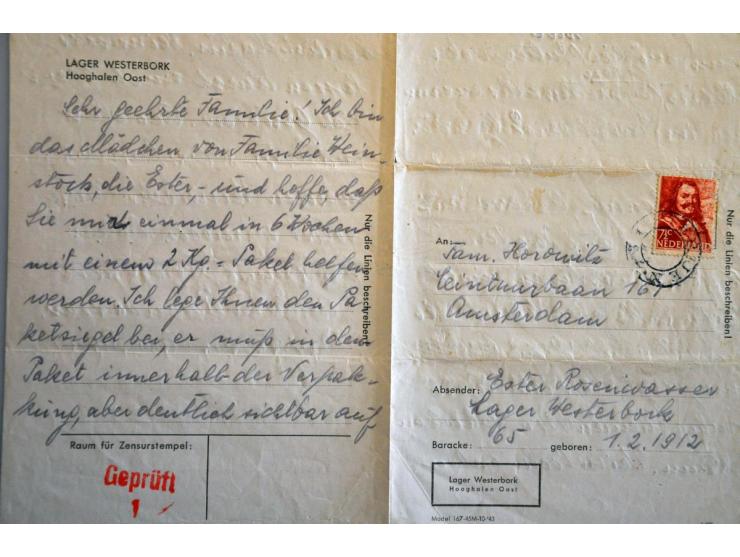 LAGER WESTERBORK
Hooghalen Oost
Sehr geehrte Familie! Ich bin
das Mädchen von Familie Wein-
stock, die Ester, - und hoffe, daß
Sie mir einmal in 6 Wochen
mit einem 2 Kg. - Paket helfen
werden. Ich lege Ihnen den Pa-
ketsiegel bei, er muß in dem
Paket innerhalb der Verpak-
kung, aber deutlich sichtbar auf
Nur die Linien beschreiben!
Raum für Zensurstempel:
Geprüft
1
7½C
NEDERLAND
An: Fam. Horowitz
Ceintuurbaan 167
Amsterdam
Nur die Linien beschreiben!
Absender: Ester Rosenwasser
Lager Westerbork
Baracke: 65 geboren: 1.2.1912
Lager Westerbork
Hooghalen Oost
Model 167-45M-10-'43